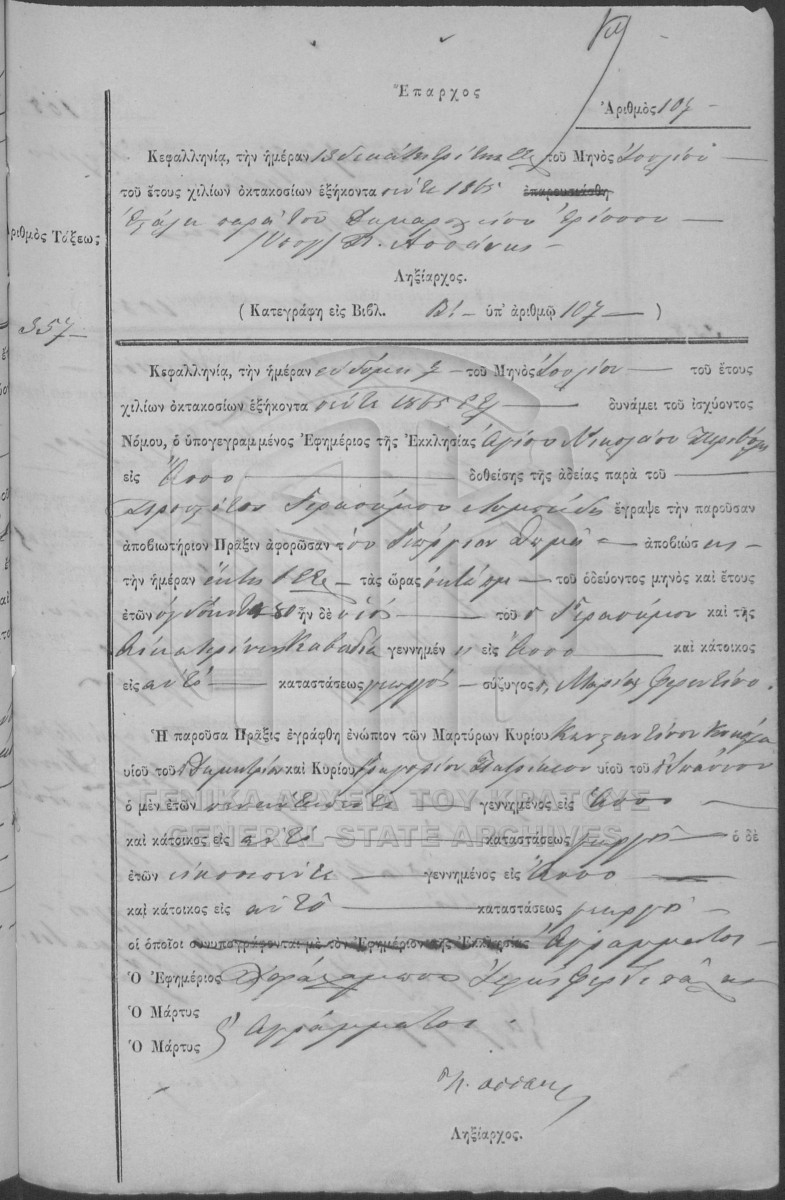 Ἔπαρχος
Ἀριθμὸς 107
Κεφαλληνίᾳ, τὴν ἡμέραν 13 δεκάτη τρίτη τοῦ Μηνὸς Ἰουλίου
τοῦ ἔτους χιλίων ὀκτακοσίων ἑξήκοντα πέντε 1865 ἐπαρουσιάσθη
ἐστάλη παρὰ τοῦ Δημαρχείου Ἐρίσσου
Ἀριθμὸς Τάξεως
Ληξίαρχος.
357
(Κατεγράφη εἰς Βιβλ. Β' ὑπ' ἀριθμῷ 107)
Κεφαλληνίᾳ, τὴν ἡμέραν ἑβδόμη 7 τοῦ Μηνὸς Ἰουλίου τοῦ ἔτους
χιλίων ὀκτακοσίων ἑξήκοντα πέντε 1865 δυνάμει τοῦ ἰσχύοντος
Νόμου, ὁ ὑπογεγραμμένος Ἐφημέριος τῆς Ἐκκλησίας Ἁγίου Νικολάου
εἰς Ἄσσο δοθείσης τῆς ἀδείας παρὰ τοῦ
Γερασίμου ἔγραψε τὴν παροῦσαν
ἀποβιωτήριον Πρᾶξιν ἀφορῶσαν τὸν Γεώργιον ἀποβιώσας
τὴν ἡμέραν ἕκτη 6 τὰς ὥρας ὀκτὼ πμ τοῦ ὁδεύοντος μηνὸς καὶ ἔτους
ἐτῶν ὀγδοήντα 80 ἦν δὲ υἱὸς τοῦ Γερασίμου καὶ τῆς
Αἰκατερίνης Καβαδία γεννημέν εἰς Ἄσσο καὶ κάτοικος
εἰς αὐτὸ καταστάσεως γεωργὸς σύζυγος Μαρίας
Ἡ παροῦσα Πρᾶξις ἐγράφθη ἐνώπιον τῶν Μαρτύρων Κυρίου Κωνσταντίνου
υἱοῦ τοῦ Δημητρίου καὶ Κυρίου Γρηγορίου υἱοῦ τοῦ Ἰωάννου
ὁ μὲν ἐτῶν γεννημένος εἰς Ἄσσο
καὶ κάτοικος εἰς αὐτὸ καταστάσεως γεωργὸς ὁ δὲ
ἐτῶν γεννημένος εἰς Ἄσσο
καὶ κάτοικος εἰς αὐτὸ καταστάσεως γεωργὸς
οἱ ὁποῖοι συνυπογράφονται μὲ τὸν Ἐφημέριον τῆς Ἐκκλησίας ἀγράμματοι
Ὁ Ἐφημέριος Χαράλαμπος
Ὁ Μάρτυς
ἀγράμματοι.
Ὁ Μάρτυς
Ληξίαρχος.
ΓΕΝΙΚΑ ΑΡΧΕΙΑ ΤΟΥ ΚΡΑΤΟΥΣ
GENERAL STATE ARCHIVES